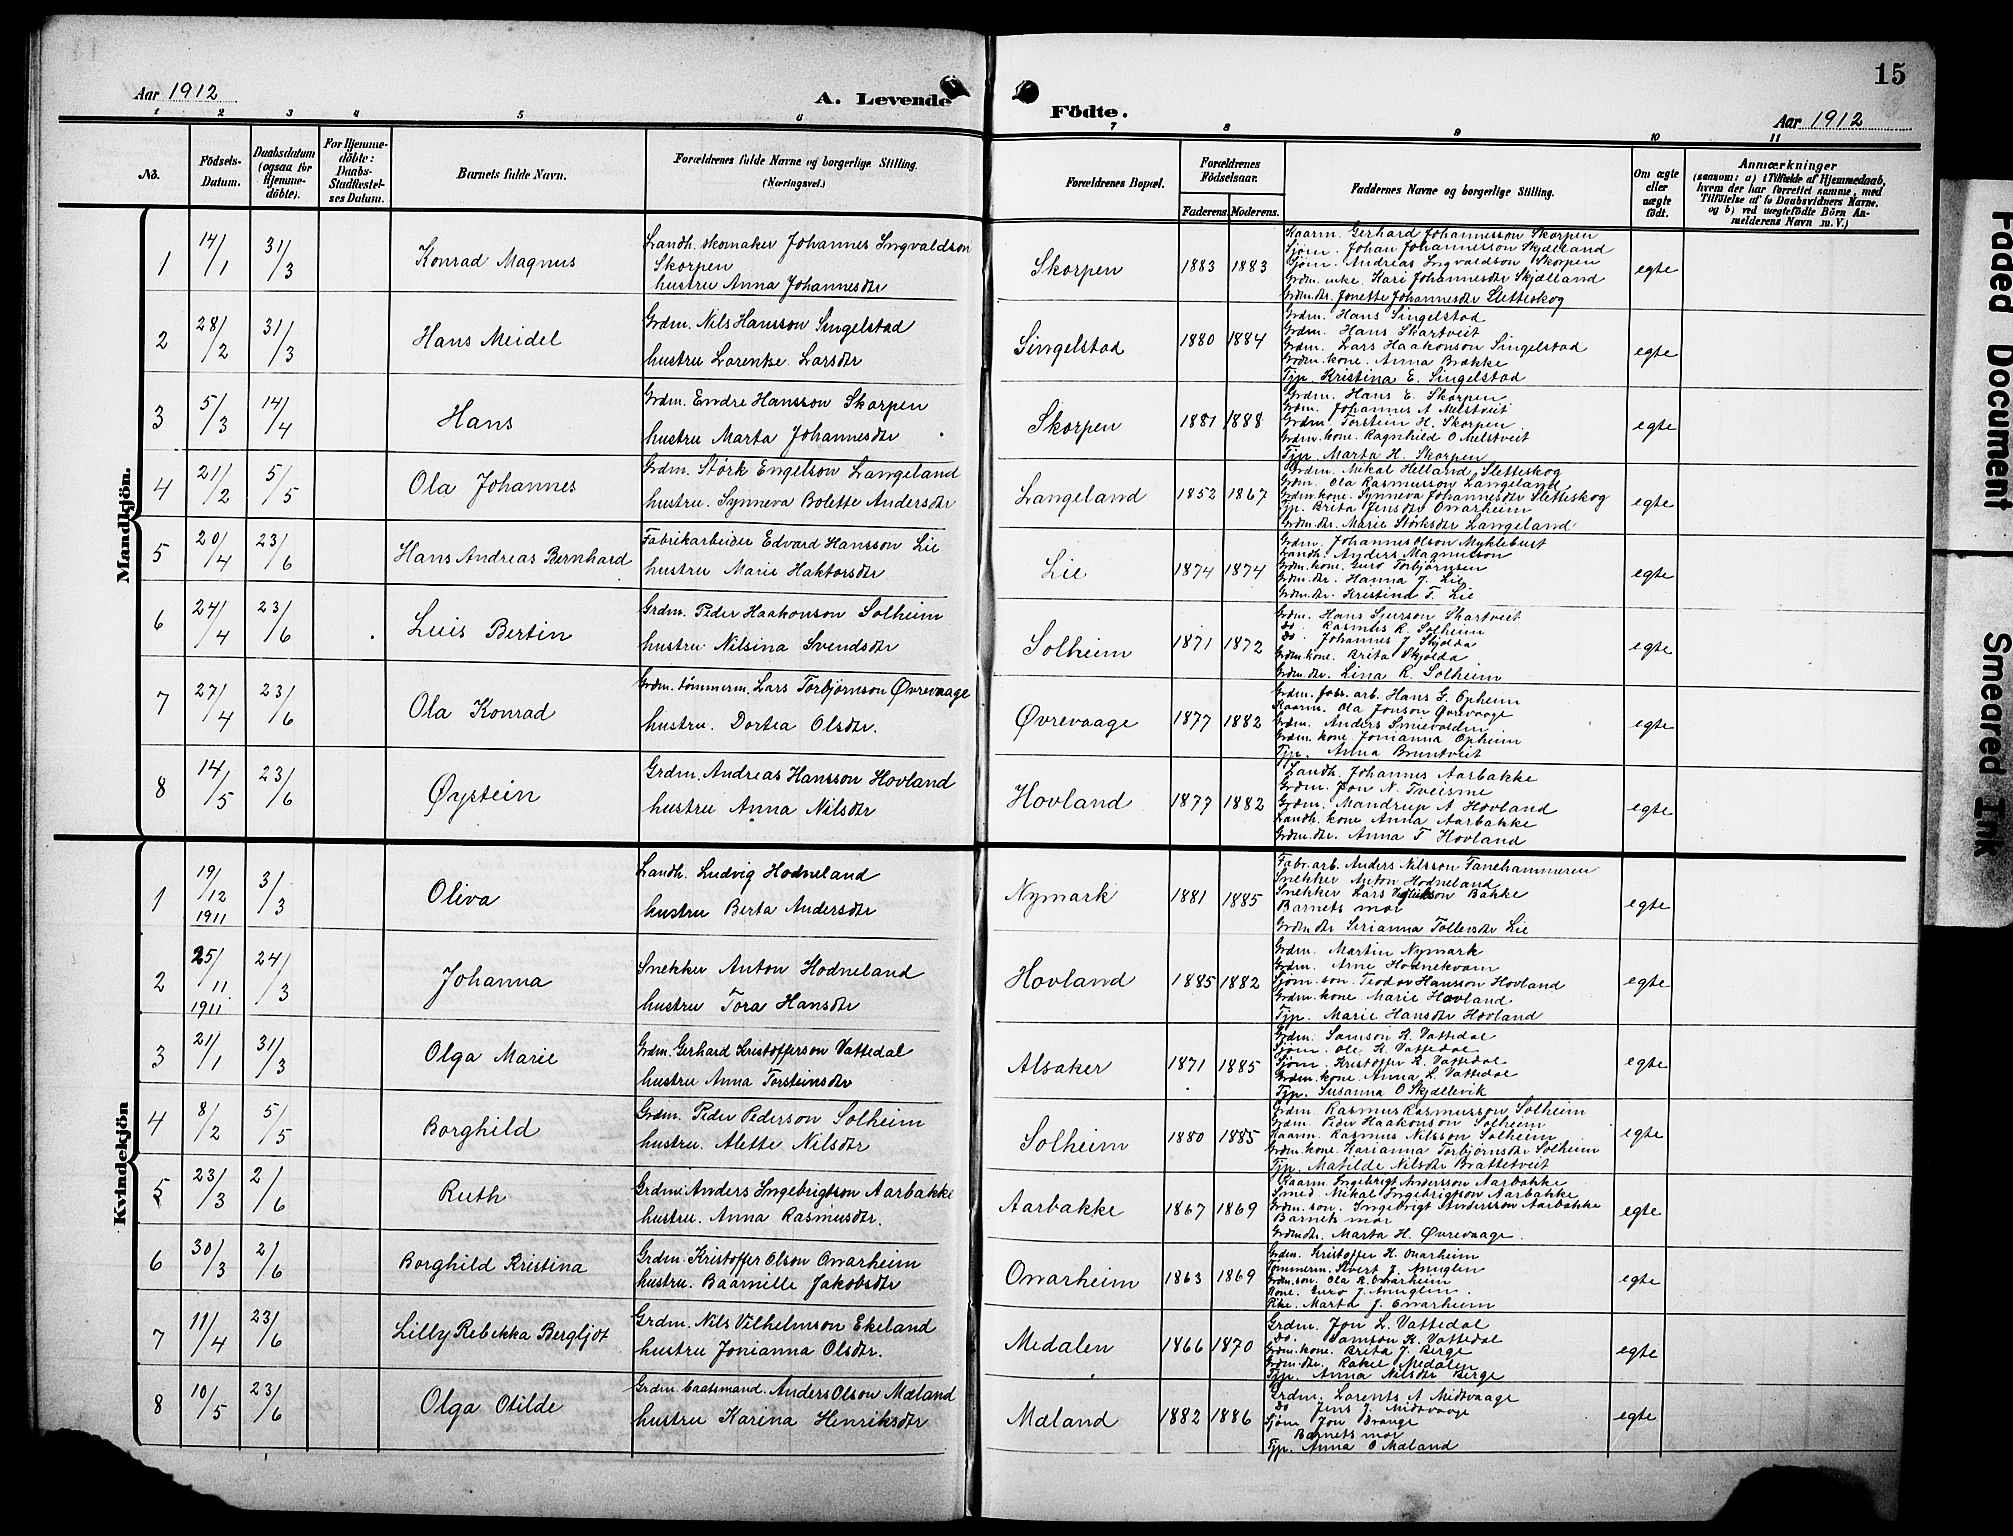 15
Aar 1912
A. Levende Födte.
Aar 1912
1 2 3 4 5 6 7 8 9 10 11
No.
Födsels-Datum.
Daabsdatum (ogsaa for Hjemme-döbte).
For Hjemme-döbte: Daabs-Stadfæstel-ses Datum.
Barnets fulde Navn.
Forældrenes fulde Navne og borgerlige Stilling. (Næringsvei.)
Forældrenes Bopæl.
Forældrenes Födselsaar.
Faderens. Moderens.
Faddernes Navne og borgerlige Stilling.
Om ægte eller uægte födt.
Anmærkninger
(saasom: a) i Tilfælde af Hjemmedaab,
hvem der har forrettet samme, med
Tilföielse af to Daabsvidners Navne,
og b) ved uægtefödte Börn An-
melderens Navn m. V.)
Mandkjön.
1 14/1 31/3 Konrad Magnus
Landh. skomaker Johannes Ingvaldson
Skorpen
hustru Anna Johannesdtr
Skorpen 1883 1883
Kaarm. Gerhard Johannesson Skorpen
Sjøm. Johan Johannesson Skjelland
Sjøm. Andreas Ingvaldson Skorpen
Grdm. enke. Kari Johannesdtr Skjelland
Grdm. dtr. Jonette Johannesdtr Sletteskog
egte
2 28/2 31/3 Hans Meidel
Grdm. Nils Hansson Singelstad
hustru Larenke Larsdtr
Singelstad 1880 1884
Grdm. Hans Singelstad
Grdm. Hans Skartveit
Grdm. Lars Haakonson Singelstad
Grdm. kone. Anna Brække
Tjp. Kristina E. Singelstad
egte
3 5/3 14/4 Hans
Grdm. Endre Hansson Skorpen
hustru Marta Johannesdtr
Skorpen 1881 1888
Grdm. Hans E. Skorpen
Grdm. Johannes A Melstveit
Grdm. Torstein H. Skorpen
Grdm. kone. Ragnhild O Melstveit
Tjp. Marta H. Skorpen
egte
4 21/2 5/5 Ola Johannes
Grdm. Størk Engelson Langeland
hustru. Synneva Bolette Andersdtr
Langeland 1852 1867
Grdm. Mikal Helland Sletteskog
Grdm. Ola Rasmusson Langeland
Grdm. kone. Synneva Johannesdtr Sletteskog
Tjp. Brita Jensdtr Onarheim
Grdm. dtr. Marie Størksdtr Langeland
egte
5 20/4 23/6 Hans Andreas Bernhard
Fabrikarbeider Edvard Hansson Lie
hustru Marie Haktorsdtr
Lie 1874 1874
Grdm. Johannes Olson Myklebust
Landh. Anders Magnusson
Grdm. kone. Guro Torbjørnsen
Grdm. dtr. Hanna J. Lie
Grdm. dtr. Kristina T. Lie
egte
6 24/4 23/6 Luis Bertin
Grdm. Peder Haakonson Solheim
hustru. Nilsina Svendsdtr
Solheim 1871 1872
Grdm. Hans Sjurson Skartveit
Do. Rasmus R. Solheim
Do. Johannes J. Skjelda
Grdm. kone. Brita Skjelda
Grdm. dtr. Lina R. Solheim
egte
7 27/4 23/6 Ola Konrad
Grdm. tømmerm. Lars Torbjørnson Øvrevaage
hustru. Dortea Olsdtr.
Øvrevaage 1877 1882
Grdm. fabr. arb. Hans G. Opheim
Kaarm. Ola Jonson Øvrevaage
Grdm. Anders Smievolden
Grdm. kone Jonianna Opheim
Tjp. Anna Bruntveit
egte
8 14/5 23/6 Øystein
Grdm. Andreas Hansson Hovland
hustru Anna Nilsdtr
Hovland 1877 1882
Landh. Johannes Aarbakke
Grdm. Jon N. Tveisme
Grdm. Mandrup A Hovland
Landh. kone Anna Aarbakke
Grdm. dtr. Anna T Hovland
egte
Kvindekjön
1 19/12 1911 3/3 Oliva
Landh. Ludvig Hodneland
hustru Berta Andersdtr
Nymark 1881 1885
Fabr. arb. Anders Nilsson Fanehammeren
Snekker Anton Hodneland
Snekker Lars Bakke
Barnets mor
Grdm dtr Sirianna Tollevsdtr Lie
egte
2 25/11 1911 24/3 Johanna
Snekker Anton Hodneland
hustru Tora Hansdtr
Hovland 1885 1882
Grdm. Martin Nymark
Grdm. Arne Hodnekvam
Sjøm. son. Teodor Hansson Hovland
Grdm. kone Marie Hovland
Tjp. Marie Hansdtr Hovland
egte
3 21/1 31/3 Olga Marie
Grdm. Gerhard Kristofferson Vattedal
hustru Anna Torsteinsdtr
Alsaker 1871 1885
Grdm. Samson K. Vattedal
Sjøm. Ole K. Vattedal
Sjøm. Kristoffer R. Vattedal
Grdm. kone. Anna L. Vattedal
Tjp. Susanna O Skjellevik
egte
4 8/2 5/5 Borghild
Grdm. Peder Pederson Solheim
hustru. Alette Nilsdtr
Solheim 1880 1885
Grdm. Rasmus Rasmusson Solheim
Grdm. Peder Haakonson Solheim
Kaarm. Rasmus Nilsson Solheim
Grdm. kone. Karianna Torbjørnsdtr Solheim
Tjp. Matilde Nilsdtr Brattetveit
egte
5 23/3 2/6 Ruth
Grdm. Anders Ingebrigtson Aarbakke
hustru. Anna Rasmusdtr.
Aarbakke 1867 1869
Kaarm. Ingebrigt Andersson Aarbakke
Smed. Mikal Ingebrigtson Aarbakke
Grdm. son. Ingebrigt Andersson Aarbakke
Barnets mor
Grdm dtr. Marta H. Øvrevaage.
egte
6 30/3 2/6 Borghild Kristina
Grdm. Kristoffer Olson Onarheim
hustru. Baarnille Jakobsdtr
Onarheim 1863 1869
Grdm. Kristoffer H. Onarheim
Tømmerm. Sivert J. Anuglen
Grdm. son. Ola R. Onarheim
Kone. Guro J. Anuglen.
Pike. Marta J. Onarheim
egte
7 11/4 23/6 Lilly Rebekka Bergljot
Grdm. Nils Vilhelmson Ekeland
hustru Jonianna Olsdtr.
Medalen 1866 1870
Grdm. Jon L. Vattedal
Do. Samson K. Vattedal
Grdm. kone. Brita J. Berge
Grdm. dtr. Rakel Medalen
Tjp. Anna Nilsdtr Berge
egte
8 10/5 23/6 Olga Otilde
Grdm. baatsmand. Anders Olson Mæland
hustru Karina Henriksdtr
Mæland 1882 1886
Grdm. Lorents A Midtvaage
Do Jens J. Midtvaage
Sjøm Jon Drange
Barnets mor
Tjp. Anna O Mæland
egte
Faded Document
Smeared Ink